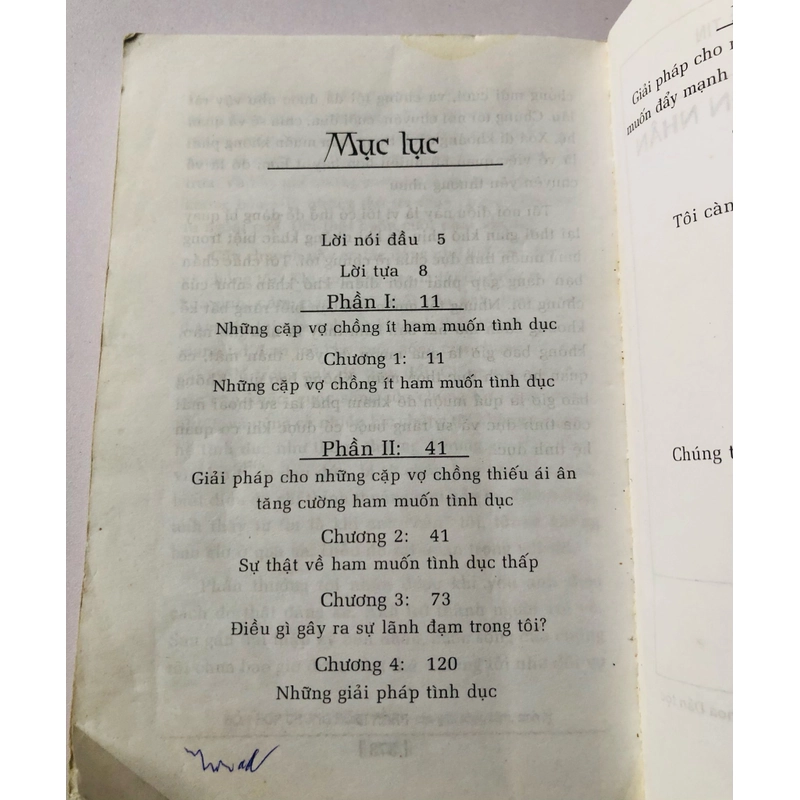 Mục lục
Lời nói đầu 5
Lời tựa 8
Phần I: 11
Những cặp vợ chồng ít ham muốn tình dục
Chương 1: 11
Những cặp vợ chồng ít ham muốn tình dục
Phần II: 41
Giải pháp cho những cặp vợ chồng thiếu ái ân
tăng cường ham muốn tình dục
Chương 2: 41
Sự thật về ham muốn tình dục thấp
Chương 3: 73
Điều gì gây ra sự lãnh đạm trong tôi?
Chương 4: 120
Những giải pháp tình dục
Giải pháp cho
muốn đẩy mạnh
Tôi càn
Chúng t